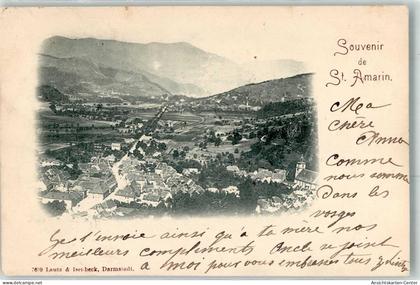 Souvenir
de
St. Amarin.
Ma
chère
Anna
Comme
nous sommes
Dans les
vosges
Ges t'envoie ainsi qu'a ta mère mes
meilleurs compliments Oncle se joint
A moi pour vous embrasser tous
Lautz & Isenbeck, Darmstadt.
www.Ansichtskarten-Center.de